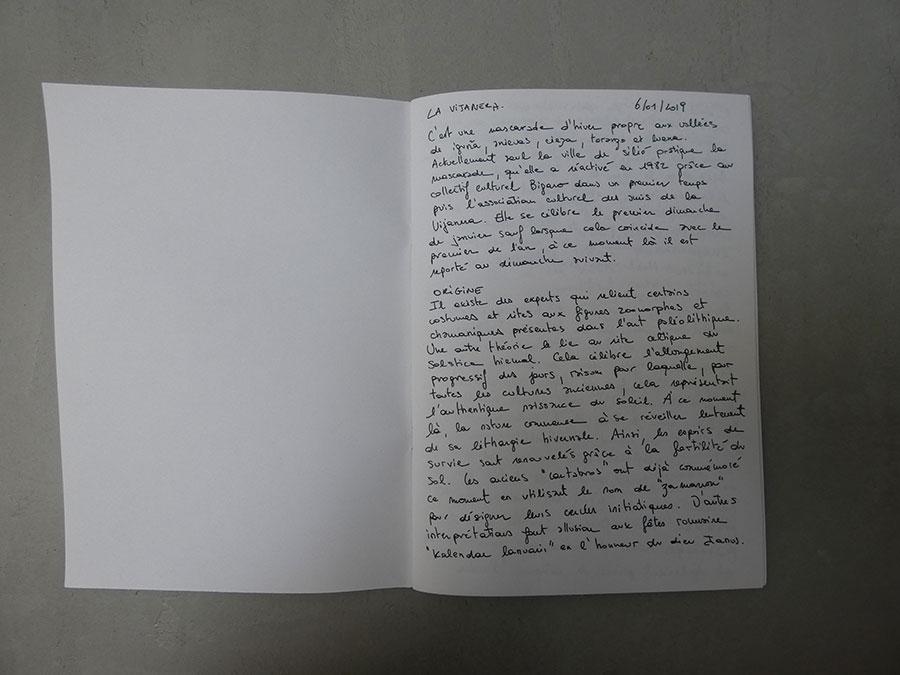 LA VIJANERA. 6/01/2019
C'est une mascarade d'hiver propre aux vallées
de iguña, anievas, cieza, toranzo et luena.
Actuellement seul la ville de silió pratique la
mascarade, qu'elle a réactivé en 1982 grâce au
collectif culturel Bigaro dans un premier temps
puis l'association culturel des amis de la
Vijanera. Elle se célèbre le premier dimanche
de janvier sauf lorsque cela coincide avec le
premier de l'an, à ce moment là il est
reporté au dimanche suivant.
ORIGINE
Il existe des experts qui relient certains
costumes et rites aux figures zoomorphes et
chamaniques présentes dans l'art paléolithique.
Une autre théorie le lie au rite celtique du
Solstice hiemal. Cela célèbre l'allongement
progressif des jours, raison pour laquelle, pour
toutes les cultures anciennes, cela représentait
l'authentique naissance du soleil. À ce moment
là, la nature commence à se réveiller lentement
de sa léthargie hivernale. Ainsi, les espoirs de
survie sont renouvelés grâce à la fertilité du
sol. Les anciens "cantabros" ont déjà commémoré
ce moment en utilisant le nom de "zamarron"
pour désigner leurs cercles initiatiques. D'autres
interprétations font allusion aux fêtes romaine
"Kalendae Ianuarii" en l'honneur du dieu Janus.